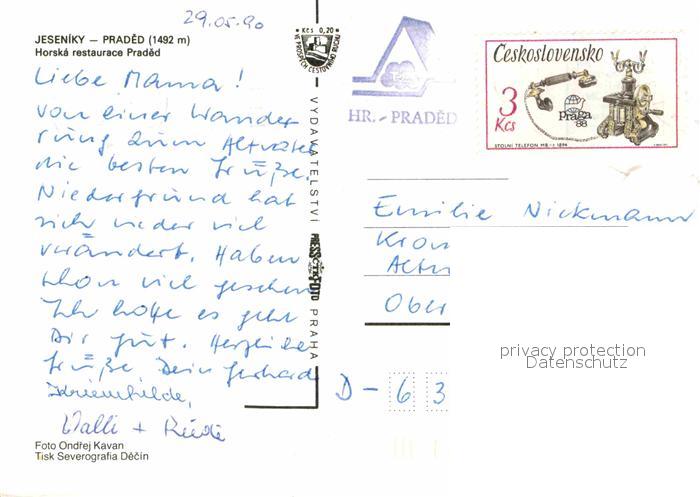 29.05.90
JESENÍKY — PRADĚD (1492 m)
Horská restaurace Praděd
Liebe Mama!
von einer Wande-
rung zum Altvater
die besten Grüße.
Niedergrund hat
sich wieder viel
verändert. Haben
schon viel gesehen
Ich hoffe es geht
Dir gut. Herzliche
Grüße, Dein Gerhard
Kriemhilde,
Walli + Rudi
Foto Ondřej Kavan
Tisk Severografia Děčín
Kčs 0,20
VE PROSPĚCH CESTOVNÍHO RUCHU
VYDAVATELSTVÍ
PRESSFOTO
PRAHA
HR. - PRADĚD
Československo
3
Kčs
praga
88
STOLNÍ TELEFON MB - r. 1894
Emilie Nickmann
Kron
Altn
Ober
D - 6 3
privacy protection
Datenschutz